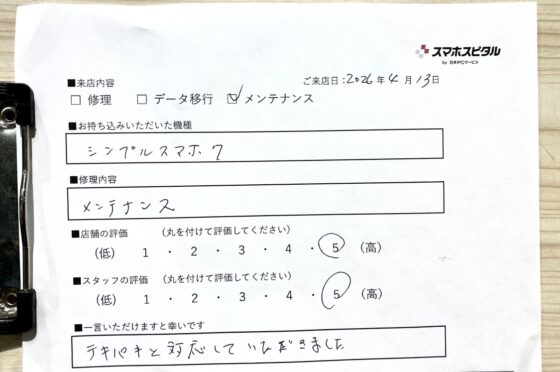 スマホスピタル
by 日本PCサービス
■来店内容
ご来店日:2026年4月13日
□ 修理 □ データ移行 ☑ メンテナンス
■お持ち込みいただいた機種
シンプルスマホ7
■修理内容
メンテナンス
■店舗の評価 (丸を付けて評価してください)
(低) 1 ・ 2 ・ 3 ・ 4 ・ 5 (高)
■スタッフの評価 (丸を付けて評価してください)
(低) 1 ・ 2 ・ 3 ・ 4 ・ 5 (高)
■一言いただけますと幸いです
テキパキと対応していただきました